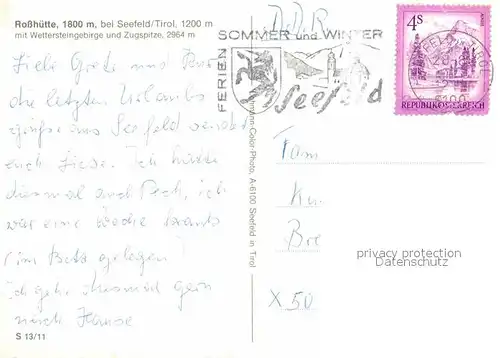 Roßhütte, 1800 m, bei Seefeld/Tirol, 1200 m
mit Wettersteingebirge und Zugspitze, 2964 m
DDR
FERIEN
SOMMER und WINTER
Seefeld
4 S
REPUBLIK ÖSTERREICH
Liebe Grete und
die letzten Urlaubs
grüße aus Seefeld sendet
euch Liese. Ich hatte
diesmal auch Pech, ich
war eine Woche krank
(im Bett gelegen)
Ich geh diesmal gern
nach Hause
S 13/11
-Color-Photo, A-6100 Seefeld in Tirol
Fam
Bre
X 50
privacy protection
Datenschutz